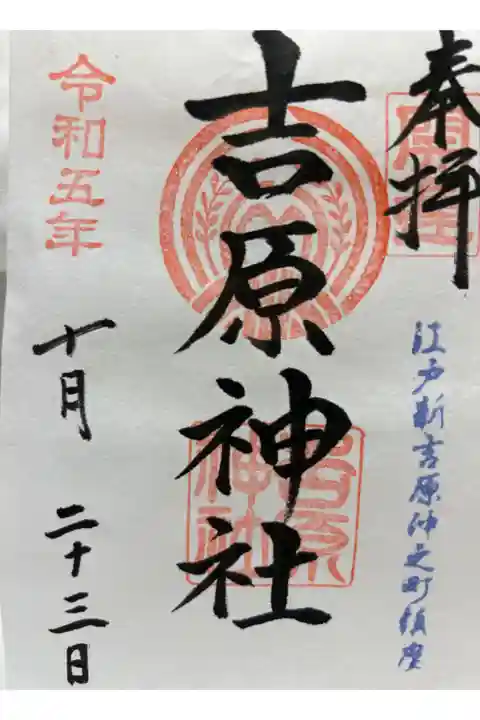 奉拝
江戸新吉原仲之町鎮座
吉原神社
吉原
神社
令和五年
十月 二十三日